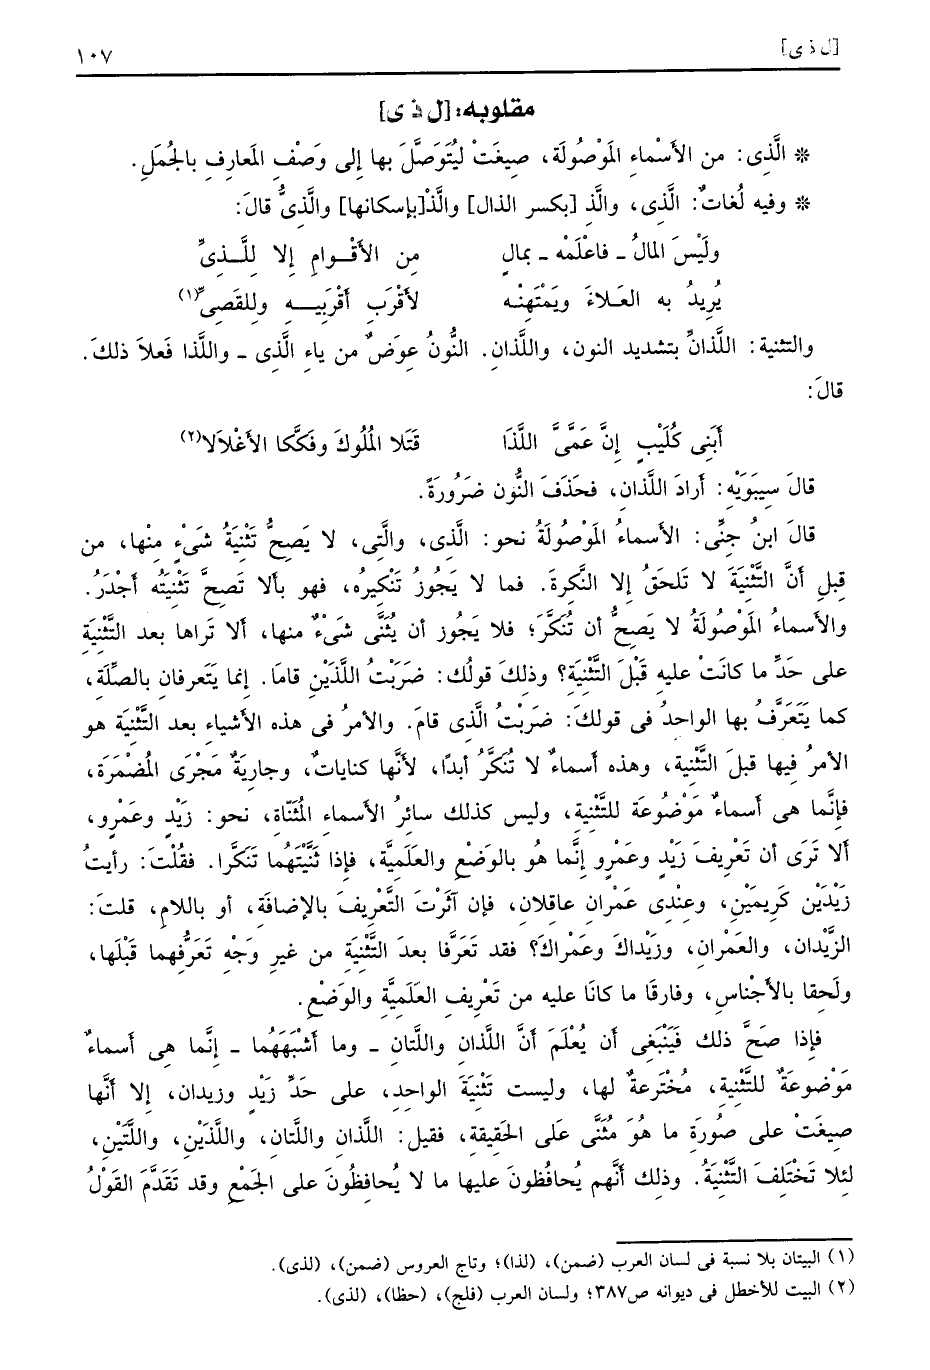 [ل ذ ى]
١٠٧
مقلوبه: [ل ذ ى]
* الَّذِى: من الأَسْماءِ المَوْصُولَة، صِيغَتْ لِيُتَوَصَّلَ بها إلى وَصْفِ المَعارِفِ بالجُمَلِ.
* وفيه لُغاتٌ: الَّذِى، والَّذِ [بكسر الذال] والَّذْ[بإسكانها] والَّذِىُّ قالَ:
ولَيْسَ المالُ ـ فاعْلَمْه ـ بمالٍ مِن الأَقْوامِ إلا لِلَّذِىِّ
يُرِيدُ به العَلاءَ ويَمْتَهِنْه لأقْرَبِ أقْرَبِيه وللقَصِىِّ(١)
والتثنية: اللَّذانِّ بتشديد النون، واللَّذانِ. النُّونُ عِوَضٌ من ياءِ الَّذِى ـ واللَّذا فَعلاَ ذلكَ.
قالَ:
أَبَنِى كُلَيْبٍ إنَّ عَمَّىَّ اللَّذَا قَتَلا المُلُوكَ وفَكَّكا الأغْلاَلا(٢)
قالَ سِيبَوَيْهِ: أرادَ اللَّذان، فحَذَفَ النُّون ضَرُورَةً.
قالَ ابنُ جِنِّى: الأسماءُ المَوْصُولَةُ نحو: الَّذِى، والَّتِى، لا يَصِحُّ تَثْنِيَةُ شَىْءٍ مِنْها، من
قِبلِ أنَّ التَّثْنِيَةَ لا تَلحَقُ إلا النَّكِرةَ. فما لا يَجُوزُ تَنْكِيره، فهو بألا تَصحَّ تَثْنِيَتُه أجْدَرُ.
والأسماءُ المَوْصُولَةُ لا يَصِحُّ أن تُنَكَّرَ؛ فلا يَجُوز أن يُثَنَّى شَىْءٌ منها، ألا تَراها بعد التَّثْنِيَة
على حَدِّ ما كانَتْ عليه قَبْلَ التَّثْنِيَة؟ وذلكَ قولُك: ضَرَبْتُ اللَّذَيْنِ قامَا. إنما يَتَعرفان بالصِّلَةِ،
كما يَتَعَرَّفُ بها الواحدُ فى قولكَ: ضَرَبْتُ الَّذى قامَ. والأمرُ فى هذه الأشياء بعد التَّثْنِيَة هو
الأمرُ فِيها قبلَ التَّثْنِية، وهذه أسماءٌ لا تُنَكَّرُ أبدًا، لأنَّها كناياتٌ، وجارِيَةٌ مَجْرَى المُضْمَرَة،
فإنَّما هى أسماءٌ مَوْضُوعَة للتَّثْنِيةِ، وليس كذلك سائرُ الأسماءِ المُثَنّاة، نحو: زَيْدٍ وعَمْرٍو،
ألا تَرَى أن تَعْرِيفَ زَيْدٍ وعَمْرٍو إنَّما هُو بالوَضْعِ والعَلَمِيَّة، فإذا ثَنَّيْتَهُما تَنَكَّرا. فقُلْتَ: رأيتُ
زَيْدَيْن كَرِيمَيْنِ، وعِندِى عَمْرانِ عاقِلان، فإن آثَرْتَ التَّعْرِيفَ بالإضافَة، أو باللامِ، قلتَ:
الزَّيْدان، والعَمْران، وزَيْداكَ وعَمْراكَ؟ فقد تَعَرَّفا بعدَ التَّثْنِيَة من غيرِ وَجْهِ تَعَرُّفهما قَبْلَها،
ولَحِقا بالأجْناسِ، وفارقَا ما كانَا عليه من تَعْرِيفِ العَلَمِيَّةِ والوَضْعِ.
فإذا صَحَّ ذلك فَيَنْبَغِى أن يُعْلَمَ أنَّ اللَّذانِ واللَّتانِ ـ وما أشْبَهَهُما ـ إنَّما هى أسماءٌ
مَوْضُوعَةٌ للتَّثْنِيةِ، مُخْتَرعةٌ لها، وليست تَثْنِيَةَ الواحِدِ، على حَدِّ زَيْدٍ وزيدان، إلا أنَّها
صِيغَتْ على صُورَةِ ما هُوَ مُثَنَّى عَلَى الحَقِيقة، فقيل: اللَّذانِ واللَّتان، واللَّذَيْنِ، واللَّتَيْنِ،
لئلا تَخْتَلِفَ التَّثْنِيَةُ. وذلِك أنَّهم يُحافُظُونَ عليها ما لا يُحافِظُونَ على الجَمْعِ وقد تَقَدَّمَ القَوْلُ
(١) البيتان بلا نسبة فى لسان العرب (ضمن)، (لذا)؛ وتاج العروس (ضمن)، (لذى).
(٢) البيت للأخطل فى ديوانه ص٣٨٧؛ ولسان العرب (فلج)، (حظا)، (لذى).